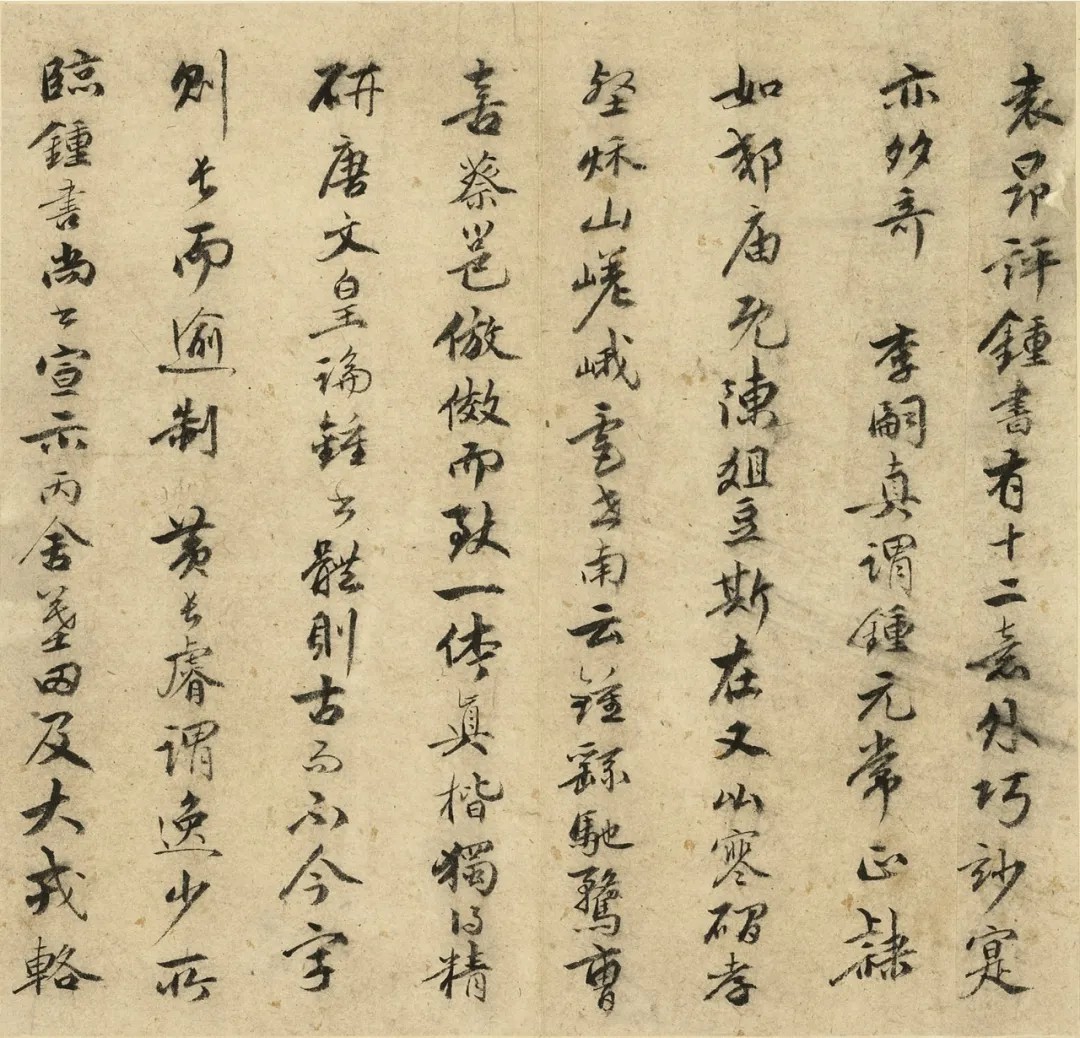 袁昂評鍾書有十二意外巧妙寔
亦多奇 李嗣真謂鍾元常正隸
如郊庙既陳俎豆斯在又山寒磵孝
壑秌山嵯峨虞世南云鍾繇馳騖曹
喜蔡邕倣傚而致一体真楷獨得精
研唐文皇論鍾書體則古而不今字
則長而逾制 黃長睿謂逸少所
臨鍾書尚書宣示丙舍墓田及大戎輅